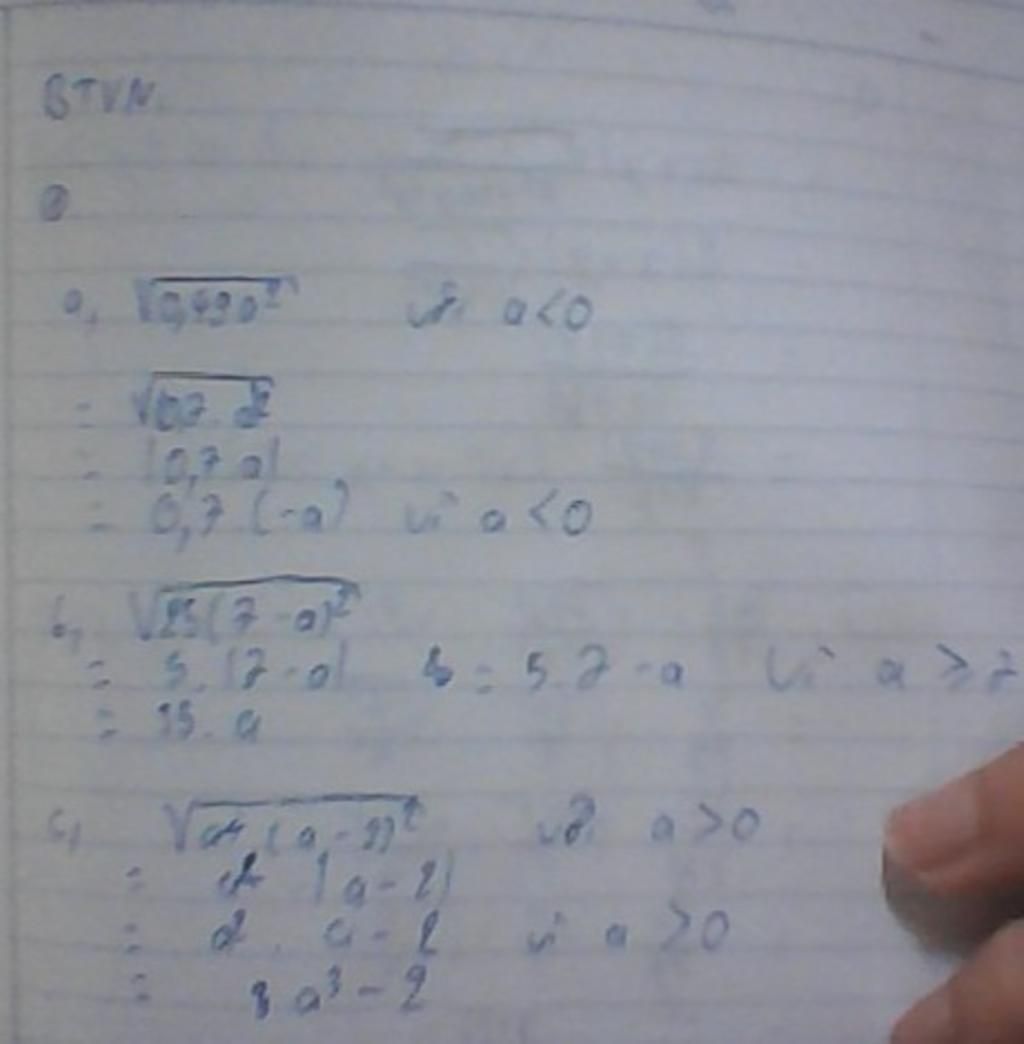 BTVN
a, √0,49a² với a<0
= |0,7 a|
= 0,7 (-a) vì a<0
b, √25(7-a)²
= 5. |7-a| = 5.7-a vì a ≥ 7
= 35. a
c, √a⁴.(a-2)² với a>0
= a² |a-2|
= a². a-2 vì a>0
= a³-2